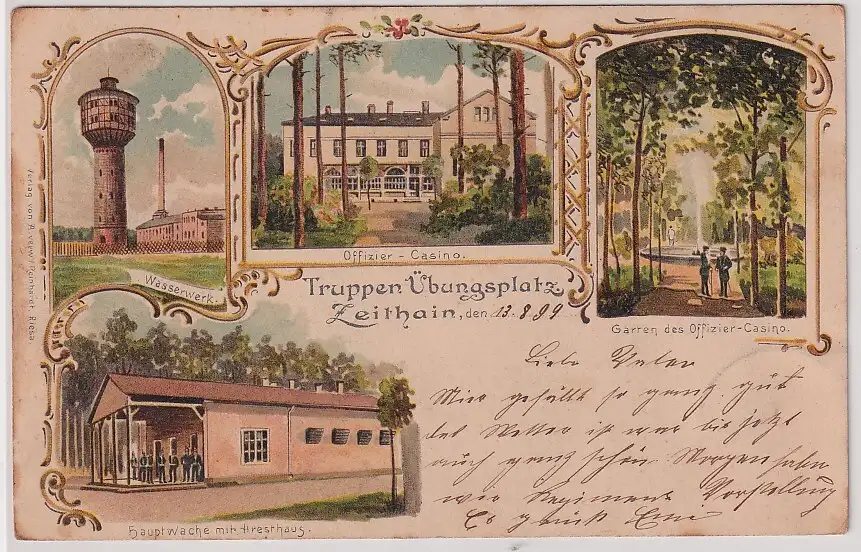 Wasserwerk.
Offizier-Casino.
Garten des Offizier-Casino.
Truppen Übungsplatz
Zeithain, den 13.8.99
Hauptwache mit Aresthaus.
Verlag von Reinhardt, Riesa
Liebe
Mir gefällt es ganz gut
das Wetter ist war bis jetzt
auch ganz schön Morgen haben
wir Regiment Vorstellung
Es grüßt